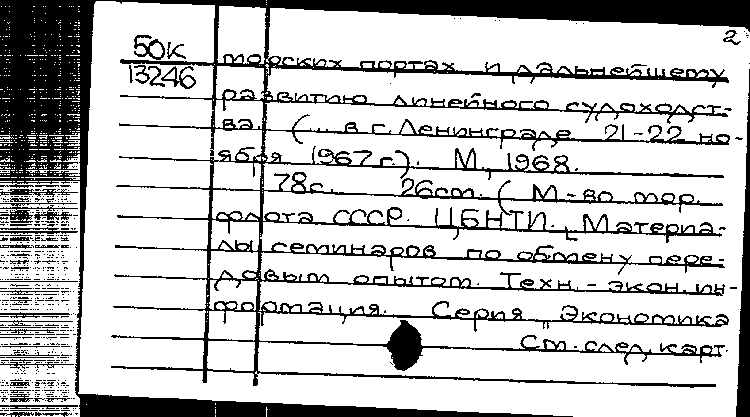 2
50к
13246
морских портах и дальнейшему
развитию линейного судоходст-
ва. (... в г. Ленинграде 21-22 но-
ября 1967 г.). М., 1968.
78с. 26см. (М-во мор.
флота СССР. ЦБНТИ. Материа-
лы семинаров по обмену пере-
довым опытом. Техн.-экон. ин-
формация. Серия "Экономика
См. след. карт.